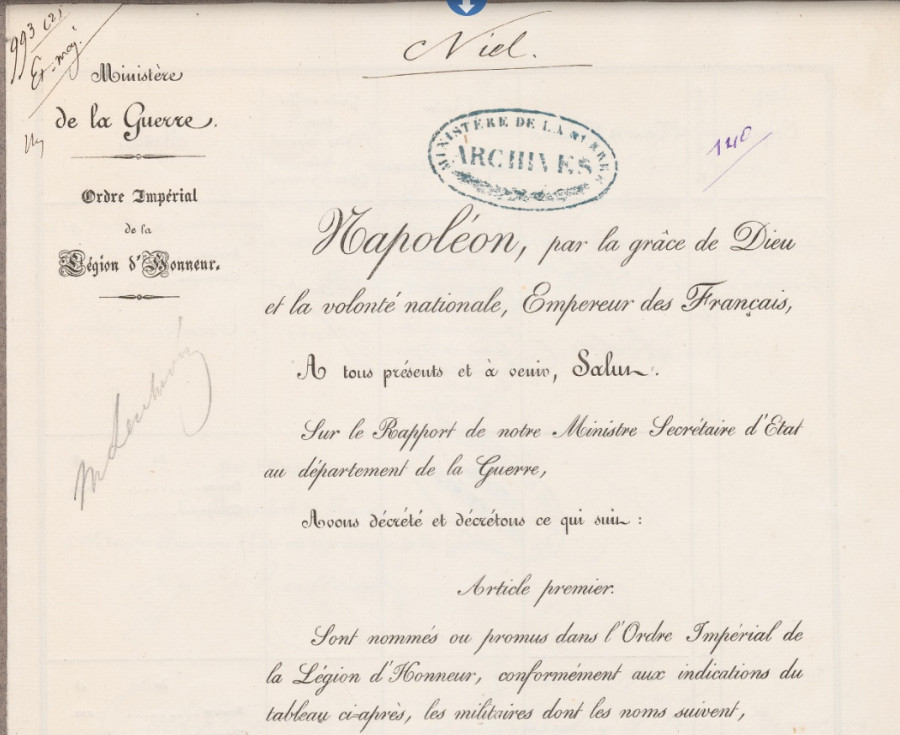 993 (2)
Et-maj.
Niel.
Ministère
de la Guerre.
Ordre Impérial
de la
Légion d'Honneur.
MINISTERE DE LA GUERRE
ARCHIVES
140
Napoléon, par la grâce de Dieu
et la volonté nationale, Empereur des Français,
A tous présents et à venir, Salut.
Sur le Rapport de notre Ministre Secrétaire d'Etat
au département de la Guerre,
Avons décrété et décrétons ce qui suit :
Article premier.
Sont nommés ou promus dans l'Ordre Impérial de
la Légion d'Honneur, conformément aux indications du
tableau ci-après, les militaires dont les noms suivent,